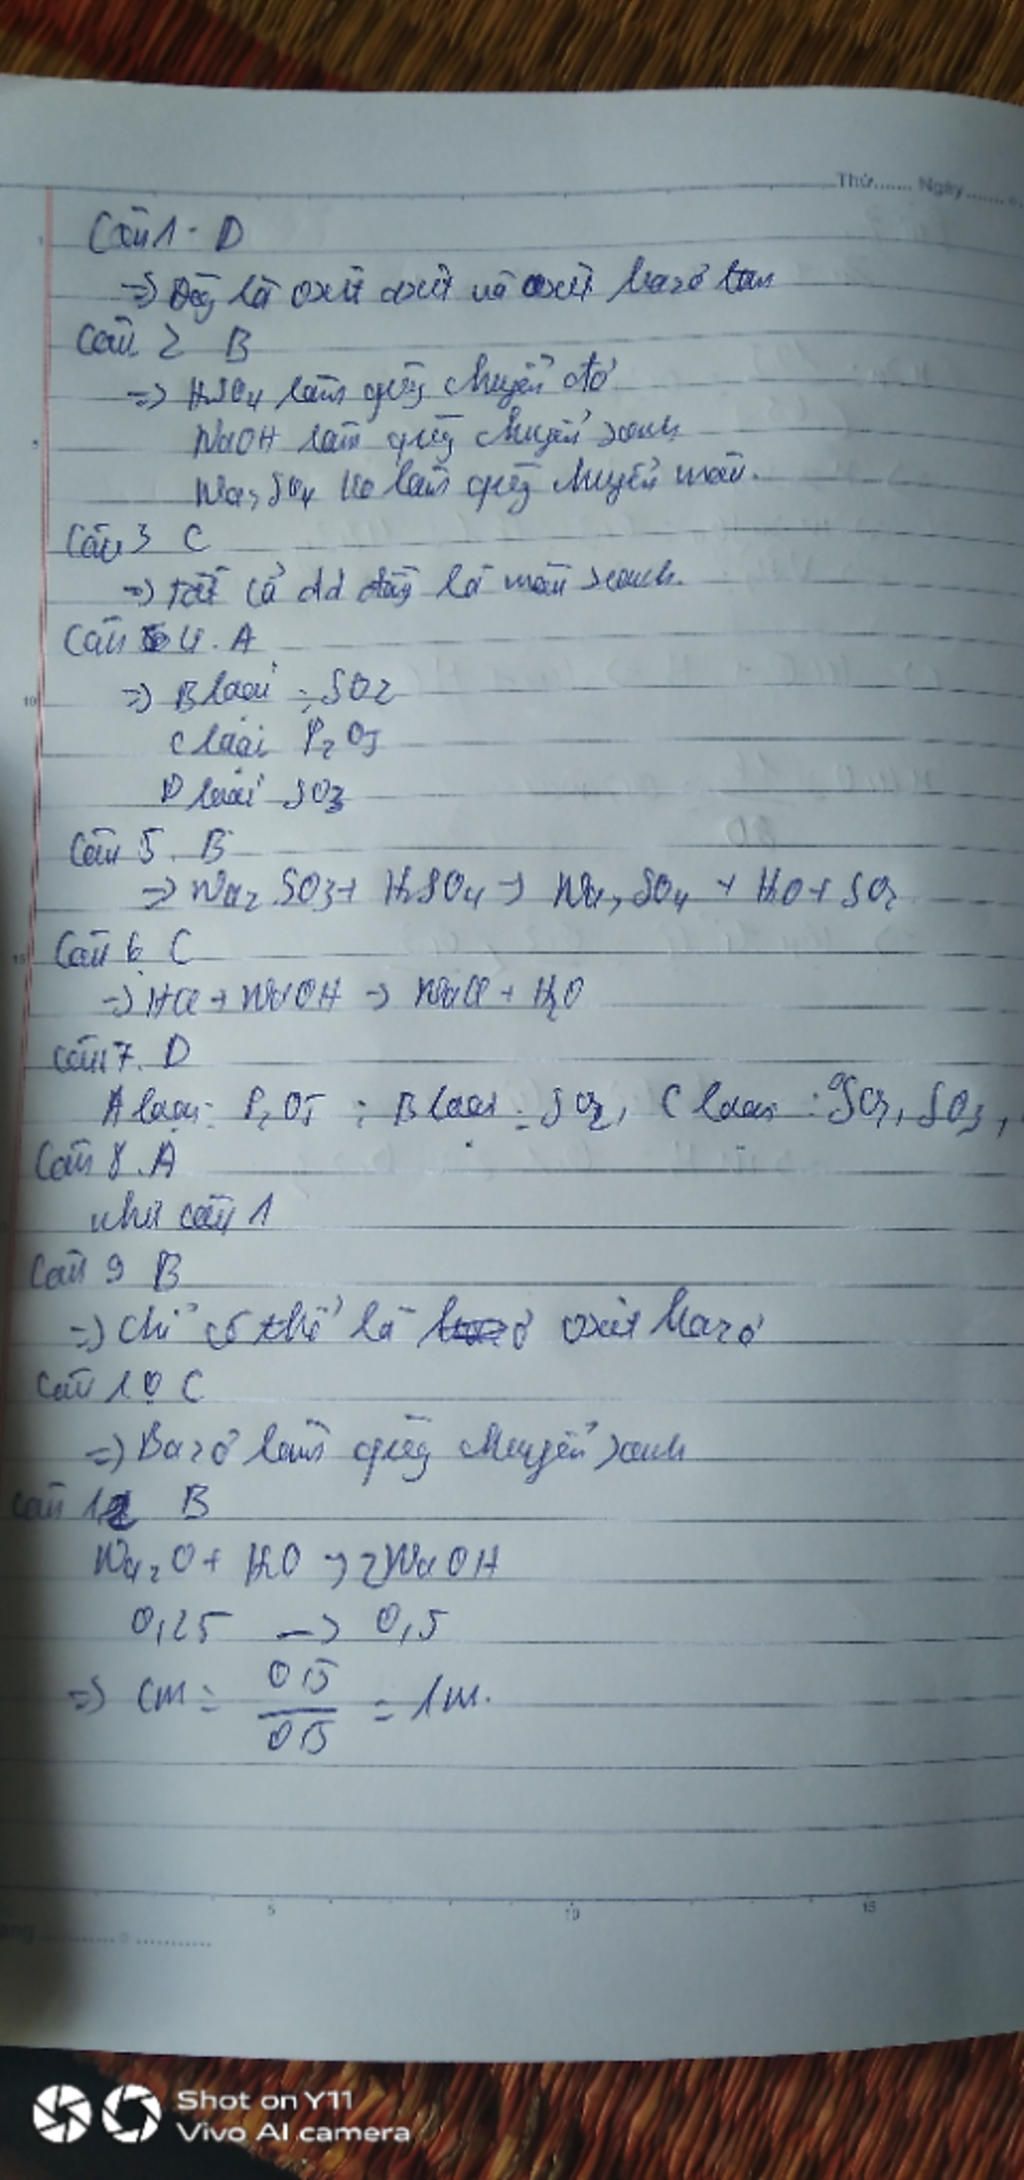 Thứ....... Ngày.......
Câu 1. D
=> Đây là oxit axit và oxit bazơ tan
Câu 2 B
=> H2SO4 làm quỳ chuyển đỏ
NaOH làm quỳ chuyển xanh
Na2SO4 ko làm quỳ chuyển màu.
Câu 3 C
=> tất cả dd đều là màu xanh.
Câu 4. A
=> B loại : SO2
C loại P2O5
D loại SO3
Câu 5. B
=> Na2SO3 + H2SO4 -> Na2SO4 + H2O + SO2
Câu 6 C
=> HCl + NaOH -> NaCl + H2O
Câu 7. D
A loại: P2O5 ; B loại: SO2, C loại : SO2, SO3,
Câu 8. A
như câu 1
Câu 9 B
=> Chỉ có thể là oxit bazơ
Câu 10 C
=> Bazơ làm quỳ chuyển xanh
Câu 12 B
Na2O + H2O -> 2NaOH
0,25 -> 0,5
=> CM = 0,5 / 0,5 = 1M.
5 10 15
Shot on Y11
Vivo AI camera